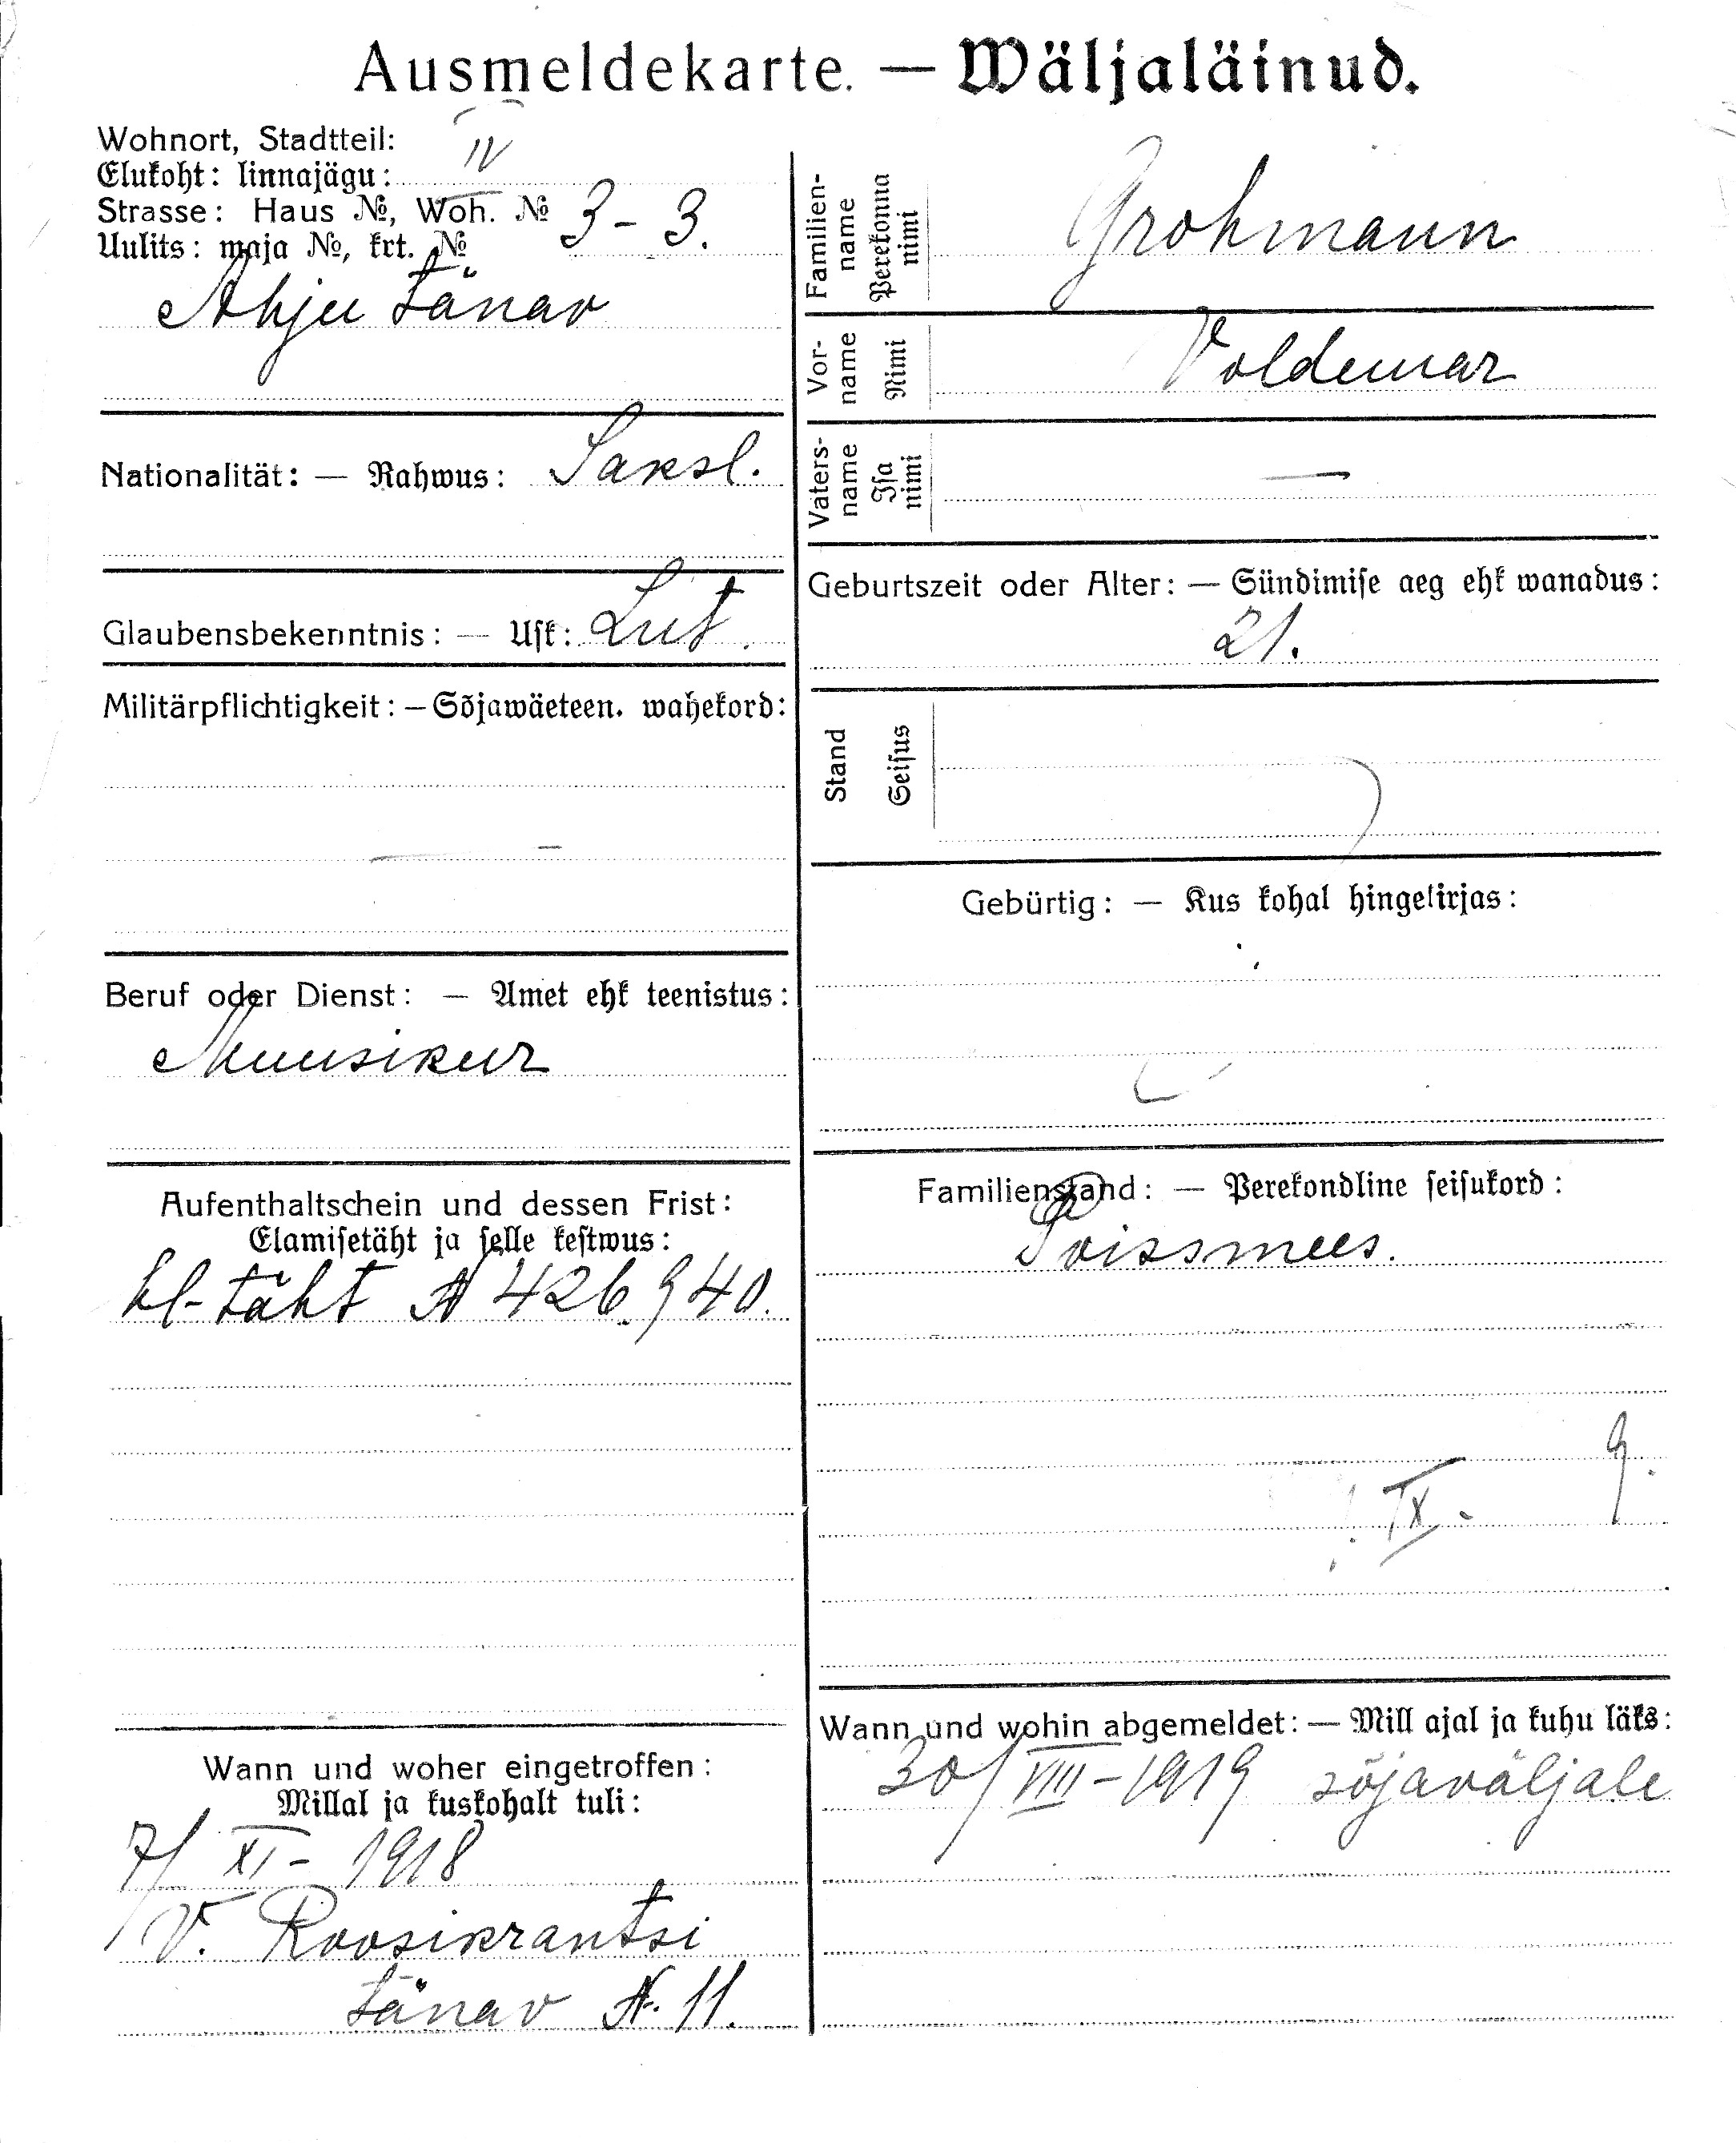 Ausmeldekarte. — Wäljaläinud.
Wohnort, Stadtteil:
Elukoht: linnajägu: IV
Strasse: Haus №, Woh. №
Uulits: maja №, krt. № 3 - 3.
Ahju tänav
Nationalität: — Rahwus: Saksl.
Glaubensbekenntnis: — Usk: Lut.
Militärpflichtigkeit: — Sõjawäeteen. wahekord:
—
Beruf oder Dienst: — Amet ehk teenistus:
Muusikur
Aufenthaltschein und dessen Frist:
Elamisetäht ja selle kestwus:
El-täht № 426940.
Wann und woher eingetroffen:
Millal ja kuskohalt tuli:
7/XI - 1918
V. Roosikrantsi
tänav № 11.
Familien-name Perekonna nimi Grohmann
Vor-name Nimi Voldemar
Vaters-name Isa nimi —
Geburtszeit oder Alter: — Sündimise aeg ehk wanadus:
21.
Stand Seisus
Gebürtig: — Kus kohal hingekirjas:
Familienstand: — Perekondline seisukord:
Poissmees.
IX - 9.
Wann und wohin abgemeldet: — Mill ajal ja kuhu läks:
30/VIII - 1919 sõjaväljale